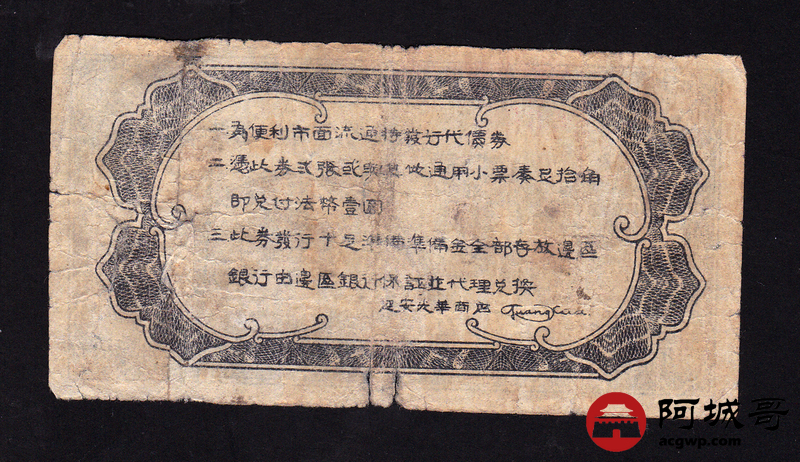 一為便利市面流通特發行代價券
二憑此券弍張或與其他通用小票湊足拾角
即兌付法幣壹圓
三此券發行十足準備準備金全部存放邊區
銀行由邊區銀行保証並代理兌換
延安光華商店
阿城哥
acgwp.com